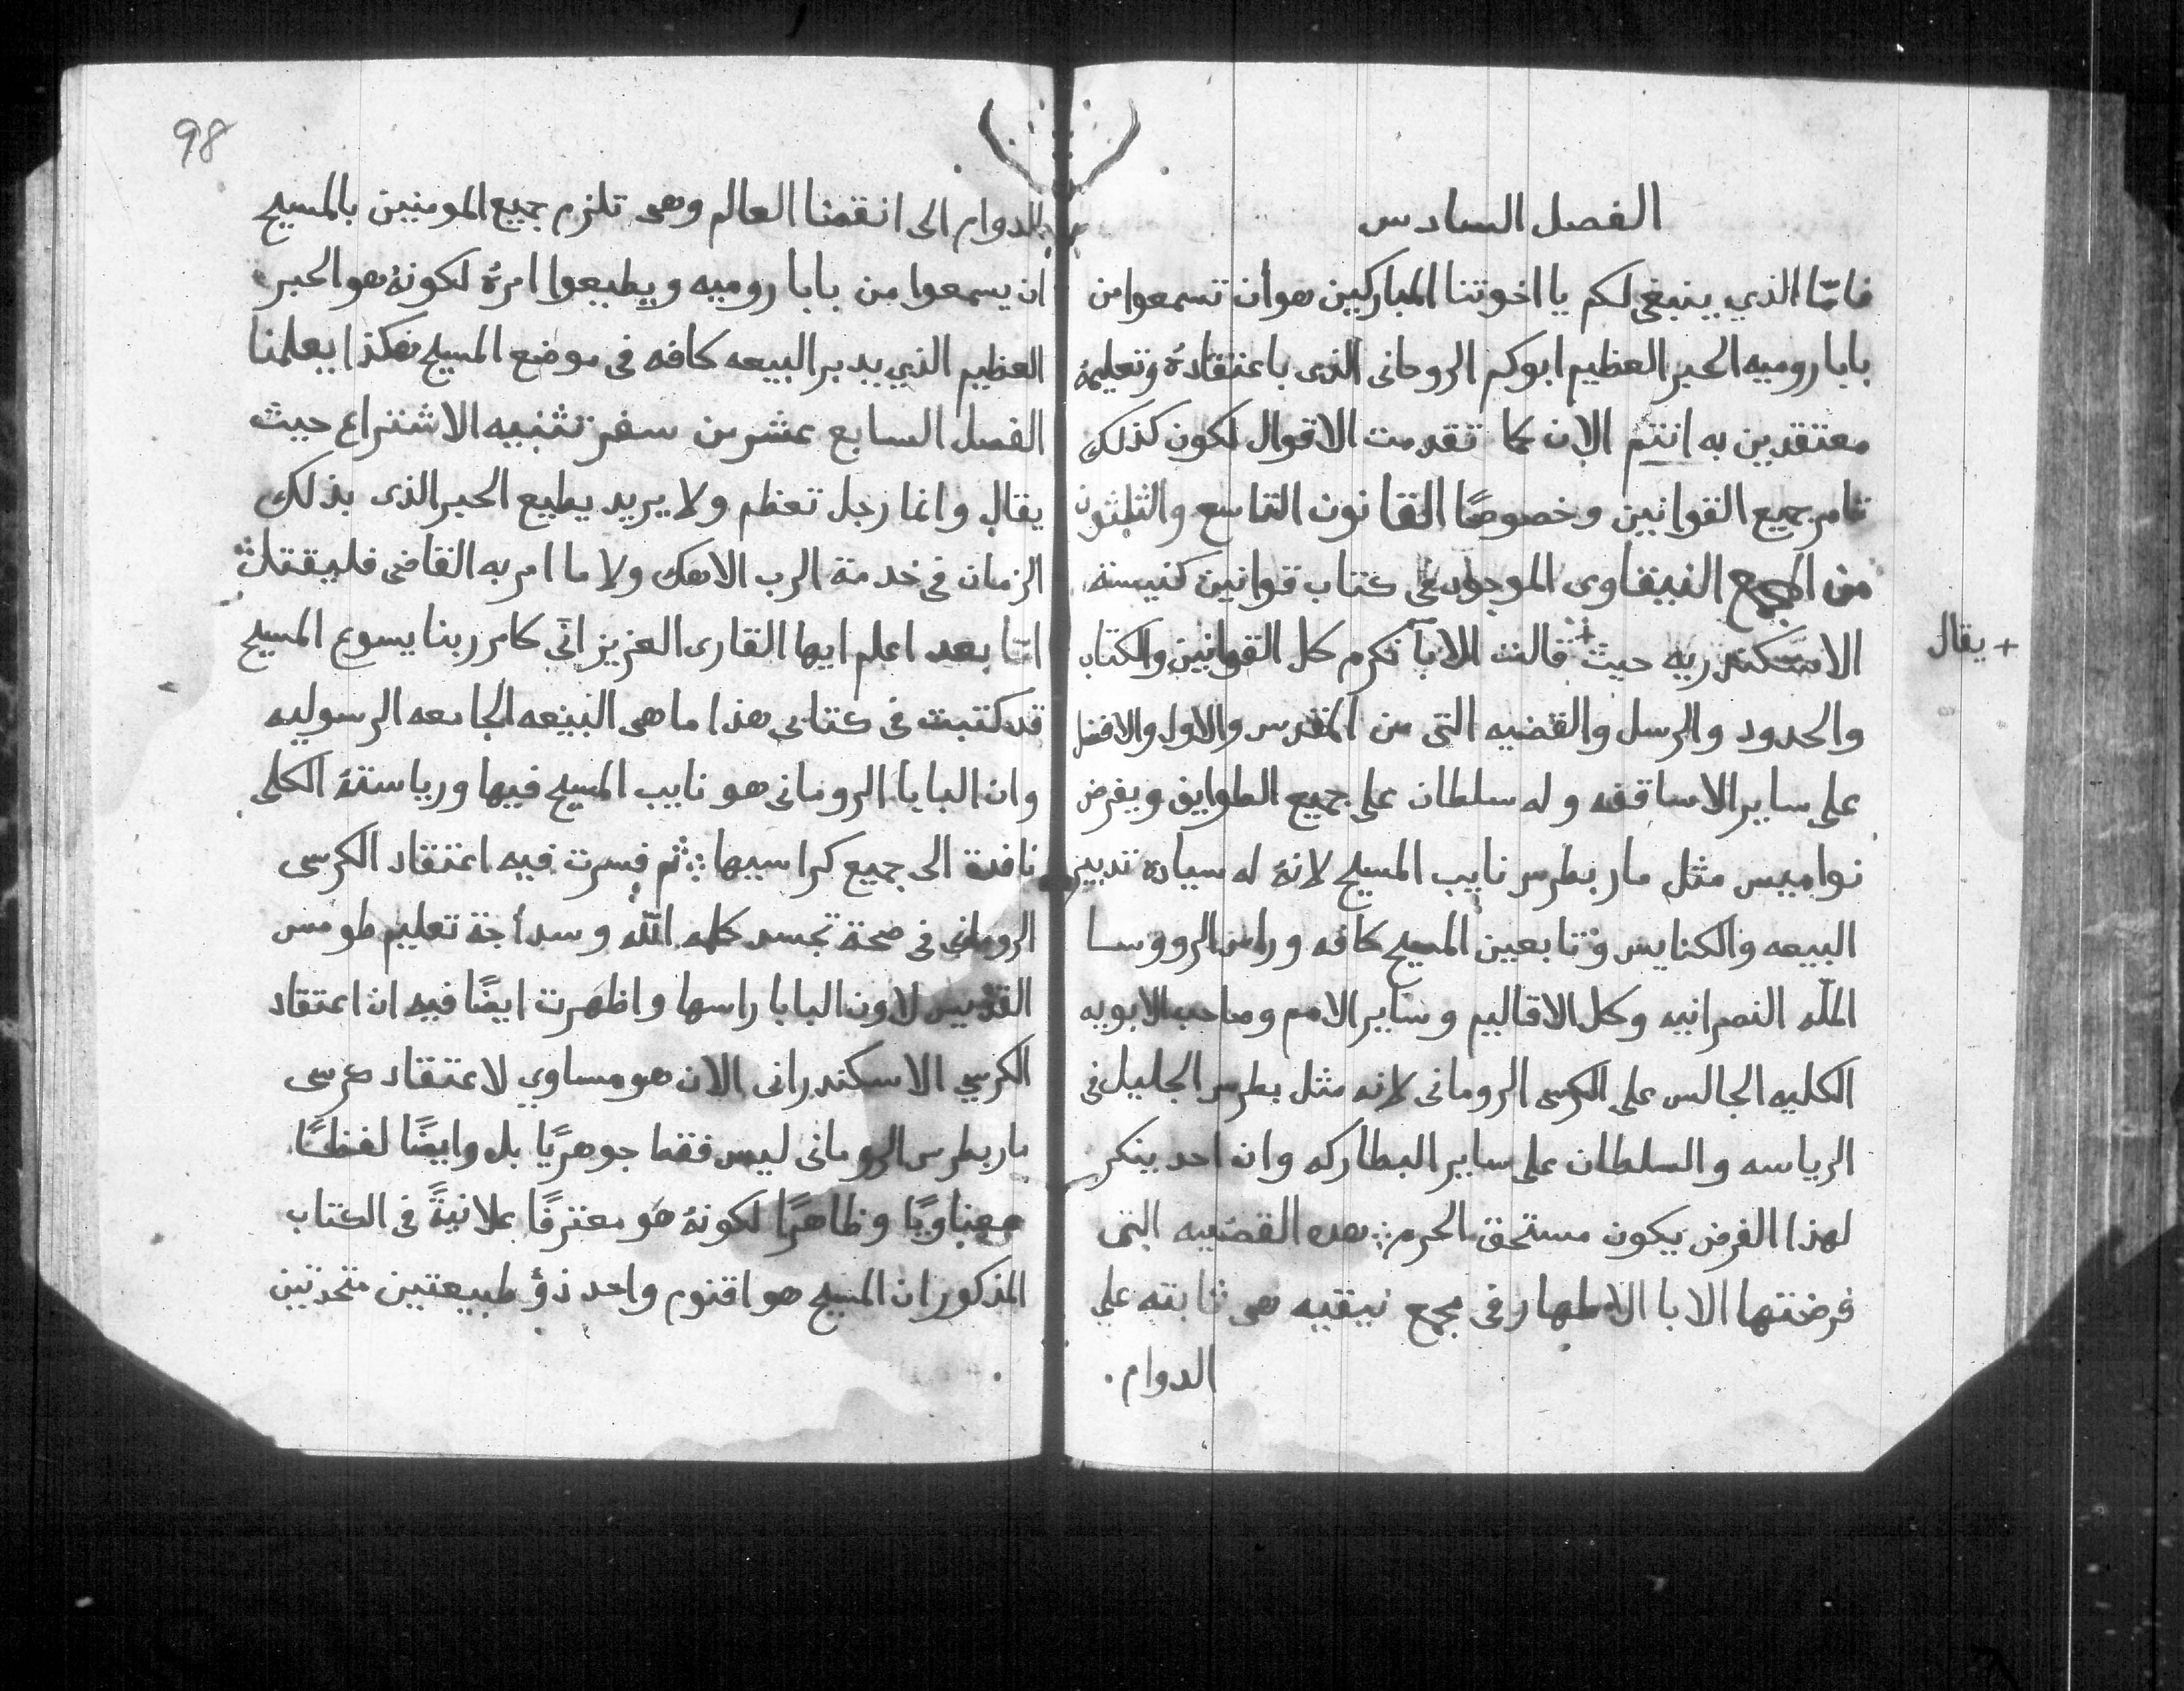 الفصل السادس
فامّا الذي ينبغى لكم يا اخوتنا المباركين هو أن تسمعوا من
بابا روميه الحبر العظيم ابوكم الروحانى الذى باعتقادهُ وتعليمهُ
معتقدين به انتم الان كما تقدمت الاقوال لكون كذلك
تامر جميع القوانين وخصوصًا القانون التاسع والثلثون
من المجمع النيقاوى الموجود فى كتاب قوانين كنيسة
الاسكندريه حيث + قالت الابآ نكرم كل القوانين والكتاب
+ يقال
والحدود والرسل والقضيه التى من المقدس والاول والافضل
على ساير الاساقفه وله سلطان على جميع الطوايف ويفرض
نواميس مثل مار بطرس نايب المسيح لانهُ له سيادة تدبير
البيعه والكنايس وتابعين المسيح كافه وراس الرووسا
الملّه النصرانيه وكل الاقاليم وساير الامم وصاحب الابويه
الكليه الجالس على الكرسى الرومانى لانه مثل بطرس الجليل فى
الرياسه والسلطان على ساير البطاركه وان احد ينكر
لهذا الفرض يكون مستحق الحرم ؞ هذه القضيه التى
فرضتها الابا الاطهار فى مجمع نيقيه هى ثابته على
الدوام .
98
الدوام الى انقضا العالم وهى تلزم جميع المومنين بالمسيح
ان يسمعوا من بابا روميه ويطيعوا امرهُ لكونهُ هو الحبر
العظيم الذي يدبر البيعه كافه فى موضع المسيح هكذا يعلمنا
الفصل السابع عشر من سفر تثنيه الاشتراع حيث
يقال وانما رجل تعظم ولا يريد يطيع الحبر الذى بذلك
الزمان فى خدمة الرب الاهك ولا ما امر به القاضى فليقتل ؞
امّا بعد اعلم ايها القارى العزيز انّى كامر ربنا يسوع المسيح
قد كتبت فى كتابى هذا ما هى البيعه الجامعه الرسوليه
وان البابا الرومانى هو نايب المسيح فيها ورياستهُ الكلى
نافدة الى جميع كراسيها ؞ ثم فسرت فيه اعتقاد الكرسى
الرومانى فى صحة تجسد كلمة اللّه وسدأجة تعليم طومس
القديس لاون البابا راسها واظهرت ايضًا فيه ان اعتقاد
الكرسي الاسكندرانى الان هو مساوي لاعتقاد كرسى
مار بطرس الرومانى ليس فقط جوهريًا بل وايضًا لفظًا
معناويًا وظاهرًا لكونهُ هو معترفًا علانيةً فى الكتاب
المذكور ان المسيح هو اقنوم واحد ذو طبيعتين متحدتين